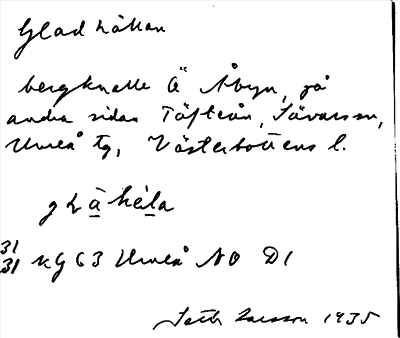 Glad hällan
bergknalle Ö Åbyn, på
andra sidan Täfteån, Sävar sn,
Umeå tg, Västerbottens l.
31
31 KG 63 Umeå NO D1
Seth Larsson 1935